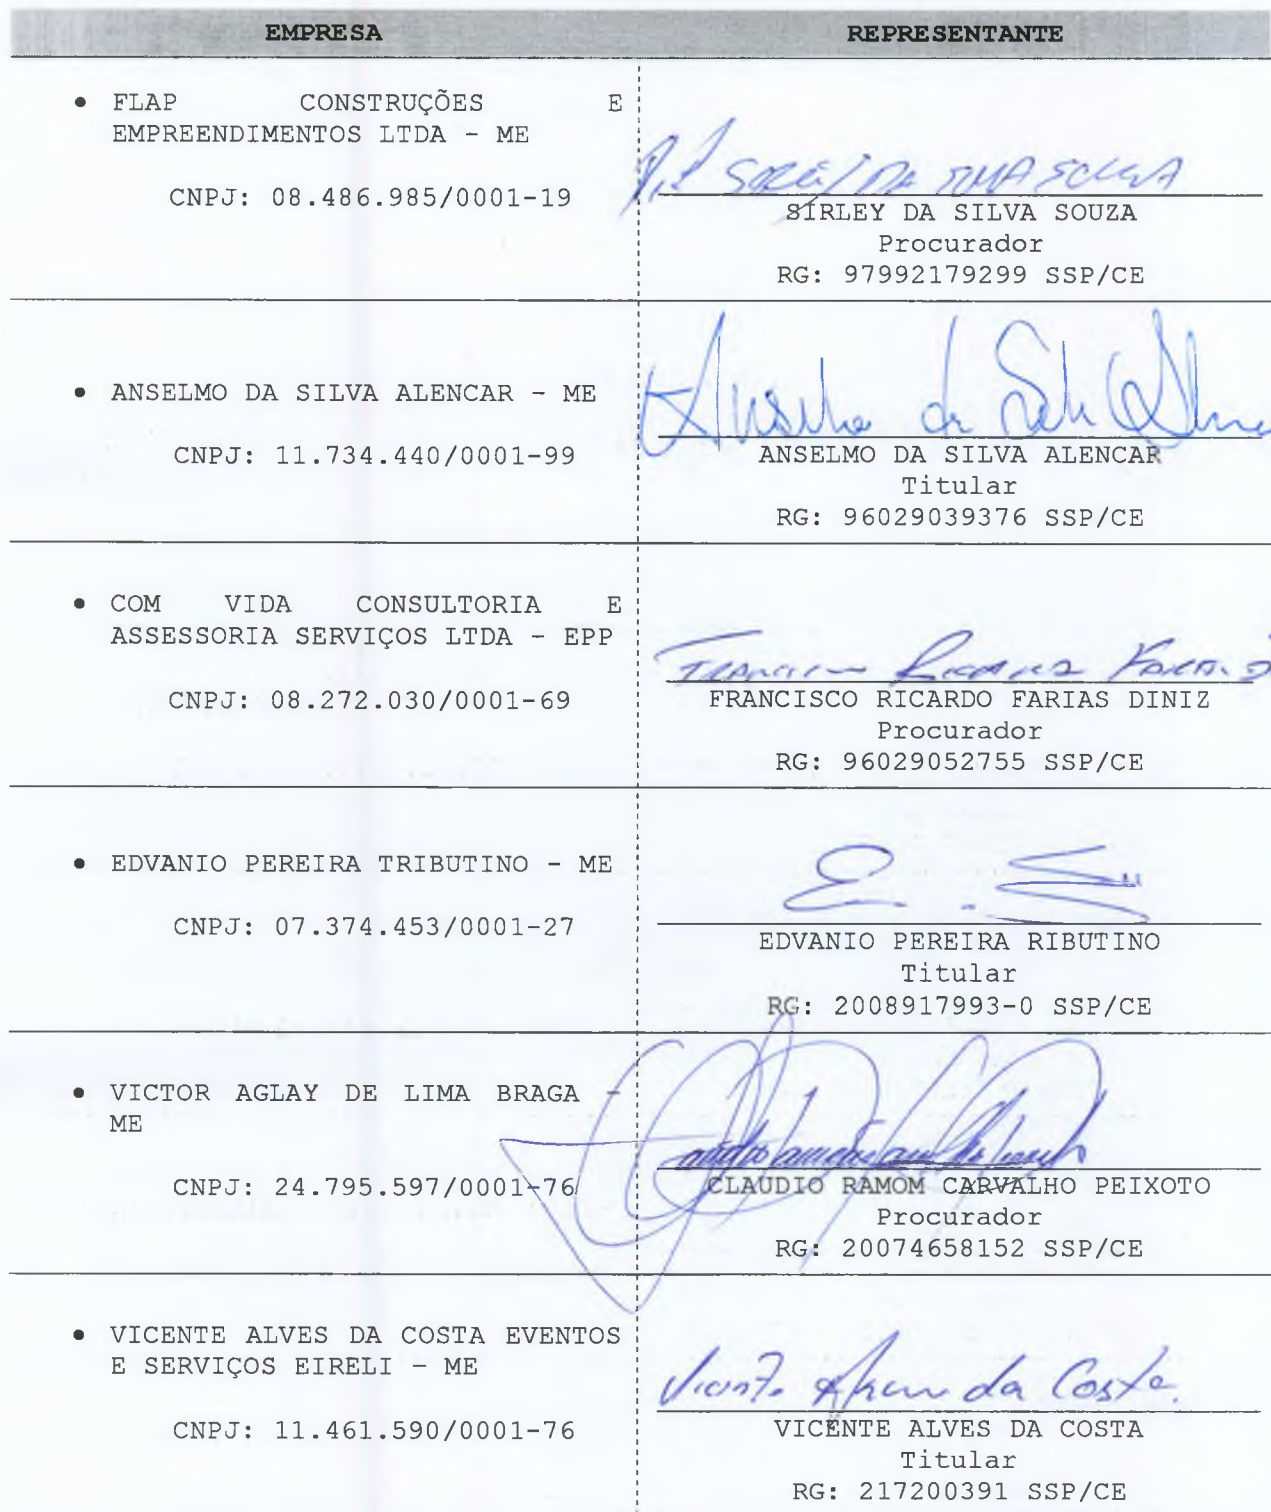 EMPRESA REPRESENTANTE
• FLAP CONSTRUÇÕES E
EMPREENDIMENTOS LTDA - ME
CNPJ: 08.486.985/0001-19
SIRLEY DA SILVA SOUZA
Procurador
RG: 97992179299 SSP/CE
• ANSELMO DA SILVA ALENCAR - ME
CNPJ: 11.734.440/0001-99
Anselmo da Silva
ANSELMO DA SILVA ALENCAR
Titular
RG: 96029039376 SSP/CE
• COM VIDA CONSULTORIA E
ASSESSORIA SERVIÇOS LTDA - EPP
CNPJ: 08.272.030/0001-69
Francisco Ricardo Farias D
FRANCISCO RICARDO FARIAS DINIZ
Procurador
RG: 96029052755 SSP/CE
• EDVANIO PEREIRA TRIBUTINO - ME
CNPJ: 07.374.453/0001-27
EDVANIO PEREIRA RIBUTINO
Titular
RG: 2008917993-0 SSP/CE
• VICTOR AGLAY DE LIMA BRAGA -
ME
CNPJ: 24.795.597/0001-76
CLAUDIO RAMOM CARVALHO PEIXOTO
Procurador
RG: 20074658152 SSP/CE
• VICENTE ALVES DA COSTA EVENTOS
E SERVIÇOS EIRELI - ME
CNPJ: 11.461.590/0001-76
Vicente Alves da Costa
VICENTE ALVES DA COSTA
Titular
RG: 217200391 SSP/CE